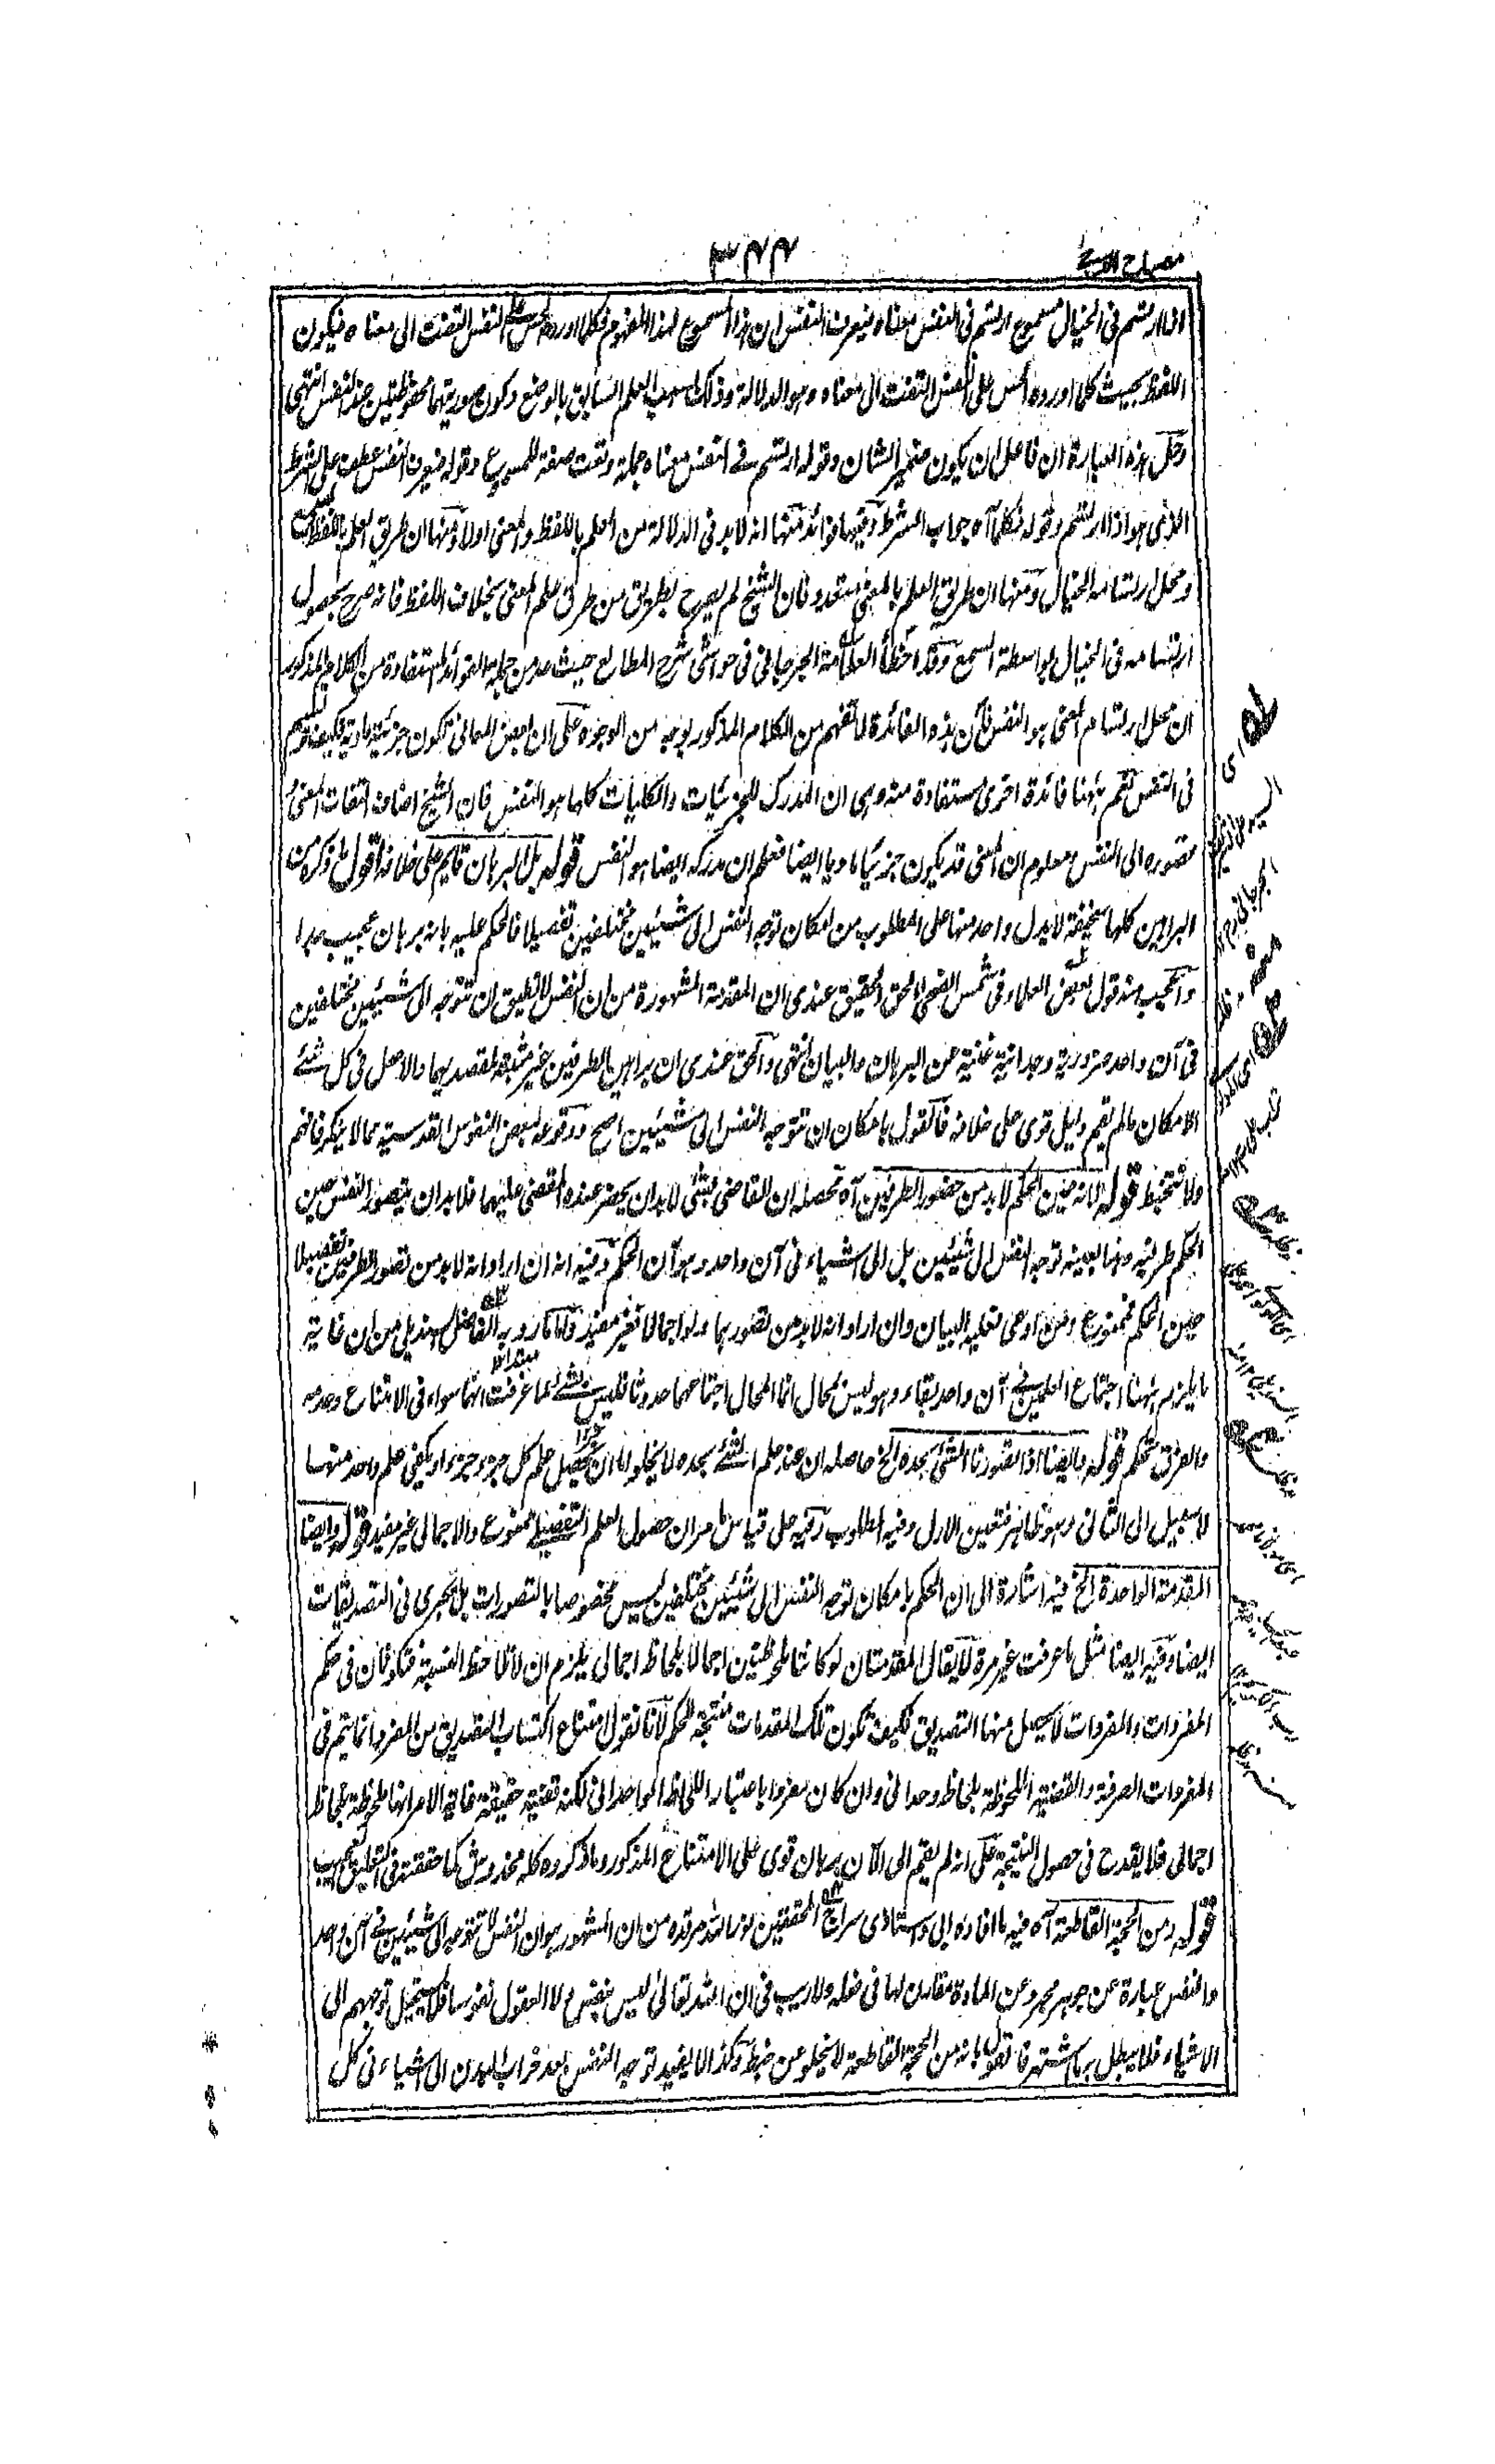 مصباح الدجى
٣٤٤
اذا ارتسم فى الخيال مسموع ارتسم فى النفس معناه فيعرف النفس ان هذا المسموع لهذا المفهوم فكلما اورده الحس على النفس التفت الى معناه فيكون
اللفظ بحيث كلما اورده الحس على النفس التفت الى معناه وهو الدلالة وذلك بسبب العلم السابق بالوضع وكون صورتيهما محفوظتين عند النفس انتهى
وحل هذه العبارة ان فاعل ان يكون ضمير الشان وقوله ارتسم فے النفس معناه جملة وقعت صفة للمسموع وقوله فيعرف النفس عطف على الشرط
الذى هو اذا ارتسم وقوله فكلما آه جواب الشرط وفيها فوائد منها انه لابد فى الدلالة من العلم باللفظ والمعنى اولا ومنها ان طريق العلم باللفظ
ومحل ارتسامه الخيال ومنها ان طريق العلم بالمعنى متعدد فان الشيخ لم يصرح بطريق من طرق علم المعنى بخلاف اللفظ فانه صرح بحصول
ارتسامه فى الخيال بواسطة السمع وقد اخطأ العلامة الجرجانى فى حواشى شرح المطالع حيث عد من جملة الفوائد المستفادة من الكلام المذكور
ان محل ارتسام المعنى هو النفس فان هذه الفائدة لا تفهم من الكلام المذكور بوجه من الوجوه على ان بعض المعانى تكون جزئية مادية فكيف ترتسم
فى النفس نعم ههنا فائدة اخرى مستفادة منه وهى ان المدرك للجزئيات والكليات كلها هو النفس فان الشيخ اضاف التفات المعنى
متصوره الى النفس ومعلوم ان المعنى قد يكون جزئيا ماديا ايضا فعلم ان مدركه ايضا هو النفس قوله بل البرهان قايم على خلافه اقول ما ذكره من
البراهين كلها سخيفة لا يدل واحد منها على المطلوب من امكان توجه النفس الى شيئين مختلفين تفصيلا فالحكم عليه بانه برهان عجيب جدا
واعجب منه قول بعض العلماء فى شمس الضحى الحق الحقيق عندى ان المقدمة المشهورة من ان النفس لا تطيق ان تتوجه الى شيئين مختلفين
فى آن واحد ضرورية وجدانية غنية عن البرهان والبيان انتهى والحق عندى ان براهين الطرفين غير مثبتة لمقصديهما والاصل فى كل شئے
الامكان مالم يقم دليل قوى على خلافه فالقول بامكان ان تتوجه النفس الى شيئين اصح ووقوعه لبعض النفوس القدسية مما لا ينكر فافهم
ولا تتخبط قوله لانه حين الحكم لابد من حضور الطرفين آه محصله ان القاضى بشئ لابد ان يحضر عنده المقضى عليهما فلابد ان يتصور النفس حين
الحكم طرفيه وهذا بعينه توجه النفس الى شيئين بل الى اشياء فى آن واحد وهو آن الحكم وفيه انه ان اراد انه لابد من تصور الطرفين تفصيلا
حين الحكم فممنوع ومن ادعى فعليه البيان وان اراد انه لابد من تصورهما ولو اجمالا فغير مفيد واما ما رد به الفاضل السنديلى من ان غاية
ما يلزم ههنا اجتماع العلمين فے آن واحد بقاء وهو ليس بمحال انما المحال اجتماعهما حدوثا فليس بشئے لما عرفت انهما سواء فى الامتناع وعدمه
والفرق تحكم قوله وايضا اذا تصورنا الشئ بحده الخ حاصله ان عند علم الشئے بحده لا يخلو اما ان يحصل علم كل جزء جزء او يكفى علم واحد منهما
لا سبيل الى الثانى وهو ظاهر فتعين الاول وفيه المطلوب وفيه على قياس ما مر ان حصول العلم التفصيلى ممنوع والاجمالى غير مفيد قوله وايضا
المقدمة الواحدة الخ فيه اشارة الى ان الحكم بامكان توجه النفس الى شيئين مختلفين ليس مخصوصا بالتصورات بل يجرى فى التصديقات
ايضا وفيه ايضا مثل ما عرفت غير مرة لا يقال المقدمتان لو كانتا ملحوظتين اجمالا بلحاظ اجمالى يلزم ان لا تلاحظ النسبة فتكونان فى حكم
المفردات والمفردات لا يحصل منها التصديق فكيف تكون تلك المقدمات منتجة للحكم لانا نقول امتناع اكتساب التصديق من المفرد انما يتم فى
المفردات الصرفة والقضية الملحوظة بلحاظ وحدانى وان كان مفردا باعتبار اللحاظ الواحدانى لكنه قضية حقيقة غاية الامر انها ملحوظة بلحاظ
اجمالى فلا يقدح فى حصول النتيجة على انه لم يقم الى الآن برهان قوى على الامتناع المذكور وما ذكروه كله مخدوش كما حققته فى التعليق العجيب
قوله ومن الحجة القاطعة آه فيه ما افاده ابى واستاذى سراج المحققين نور الله مرقده من ان المشهور هو ان النفس لا تتوجه الى شيئين فے آن واحد
والنفس عبارة عن جوهر مجرد عن المادة مقارن لها فى فعله ولا ريب فى ان الله تعالى ليس بنفس ولا العقول نفوسا فلا يستحيل توجههم الى
الاشياء فلا يبطل به ما اشتهر فالقول بانه من الحجة القاطعة لا يخلو عن خبط وكذا لا يفيد توجه النفس بعد خراب البدن الى اشياء فى كل